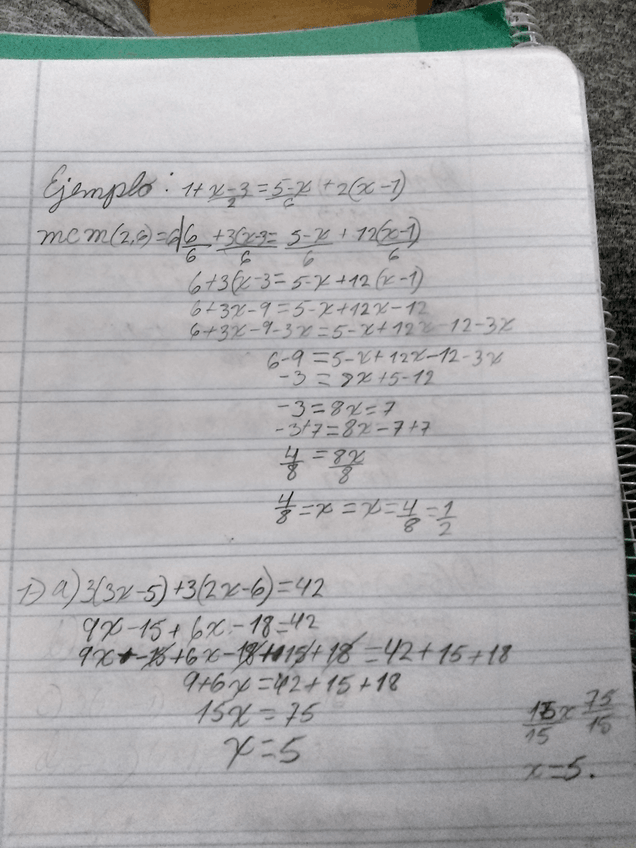 Ejemplo: 1+x-3/2=5-x/6+2(x-1)
mcm(2,6)=6|6/6+3(x-3/6=5-x/6+12(x-1)/6
6+3(x-3=5-x+12(x-1)
6+3x-9=5-x+12x-12
6+3x-9-3x=5-x+12x-12-3x
6-9=5-x+12x-12-3x
-3=8x+5-12
-3=8x=7
-3+7=8x-7+7
4/8=8x/8
4/8=x=x=4/8=1/2
1) a) 3(3x-5)+3(2x-6)=42
9x-15+6x-18=42
9x-15+6x-18+15+18=42+15+18
9+6x=42+15+18
15x=75
x=5
15x/15 75/15
x=5.